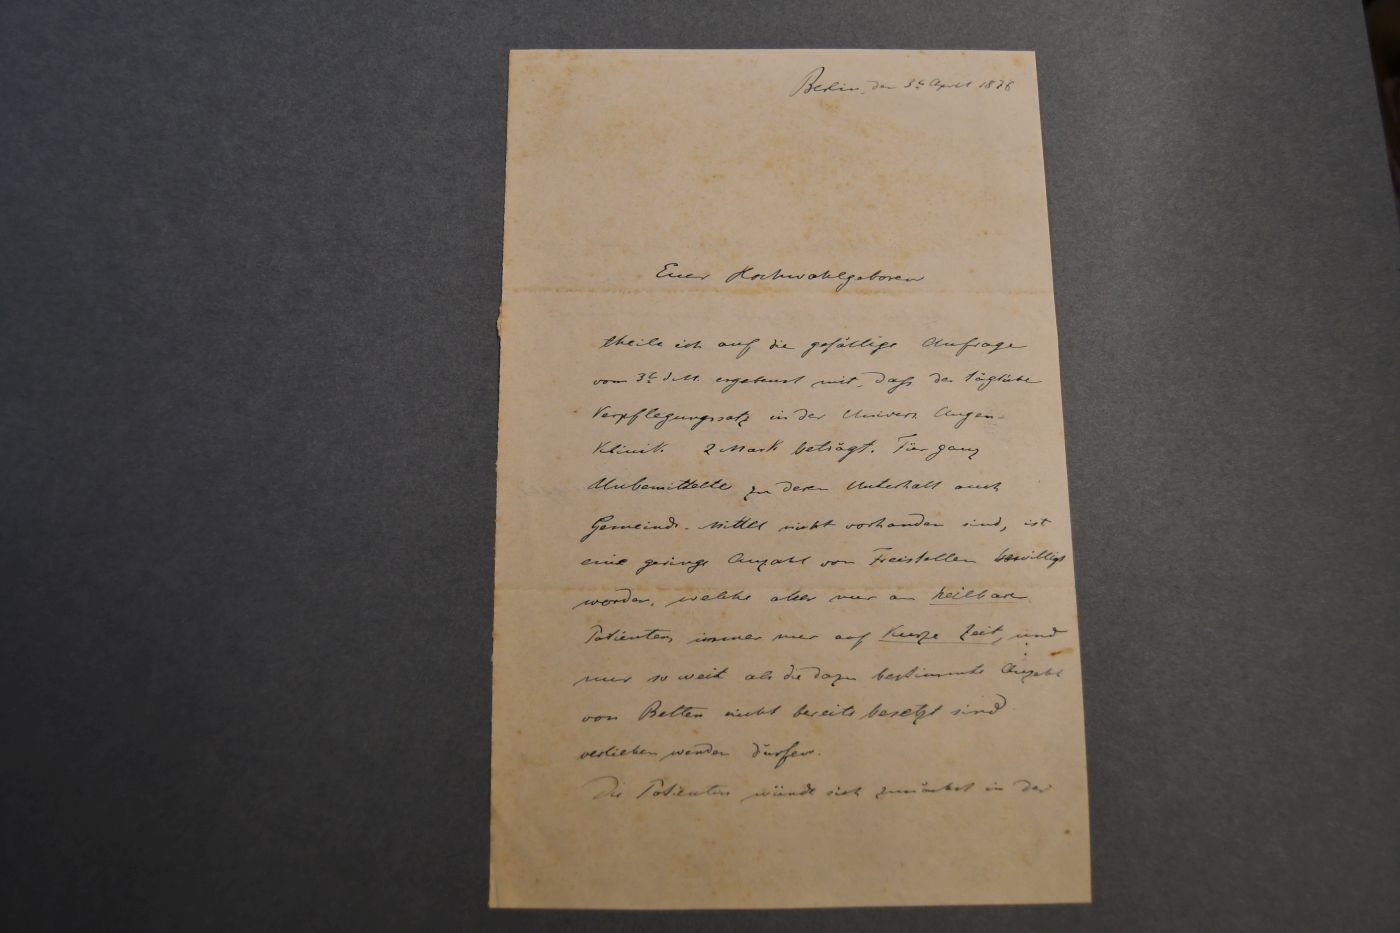 Berlin, den 3t April 1876
Euer Hochwohlgeboren
theile ich auf die gefällige Anfrage
vom 3t d M. ergebenst mit, daß der tägliche
Verpflegungssatz in der Univers. Augen-
Klinik 2 Mark beträgt. Für ganz
Unbemittelte zu deren Unterhalt auch
Gemeinde-Mittel nicht vorhanden sind, ist
eine geringe Anzahl von Freistellen bewilligt
worden, welche aber nur an heilbare
Patienten, immer nur auf kurze Zeit, und
nur so weit als die dazu bestimmte Anzahl
von Betten nicht bereits besetzt sind
verliehen werden dürfen.
Die Patientin würde sich zunächst in der